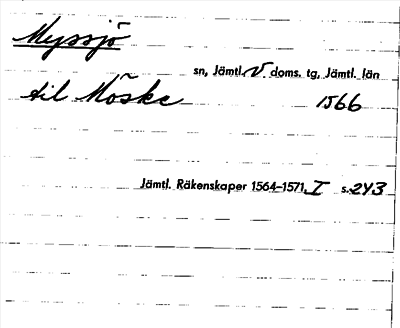 Myssjö
sn, Jämtl. V doms. tg, Jämtl. län
til Möske 1566
Jämtl. Räkenskaper 1564–1571, I s. 243